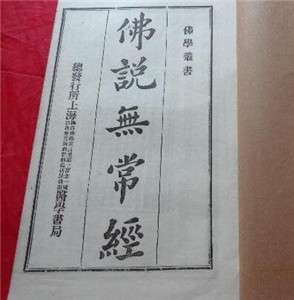 佛學叢書
佛說無常經
總發行所上海
醫學書局